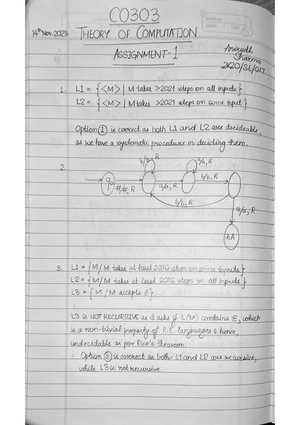 CO303
14th Nov. 2023 THEORY OF COMPUTATION
ASSIGNMENT-1
Anirudh
Sharma
2K20/SE/017
1. L1 = {<M> | M takes >2021 steps on all inputs}
L2 = {<M> | M takes >2021 steps on some input}
Option ① is correct as both L1 and L2 are decideable,
as we have a systematic procedure in deciding them.
2.
#/#, R
b/b, R
b/b, R
a/a, R
hA
3. L1 = {M/M takes at least 2016 steps on some inputs}
L2 = {M/M takes at least 2016 steps on all inputs}
L3 = {M/M accepts ε}
L3 is NOT RECURSIVE as it asks if L(M) contains ε, which
is a non-trivial property of R.E. languages & hence,
undecidable as per Rice's theorem.
∴ Option is correct as both L1 and L2 are recursive,
while L3 is not recursive.